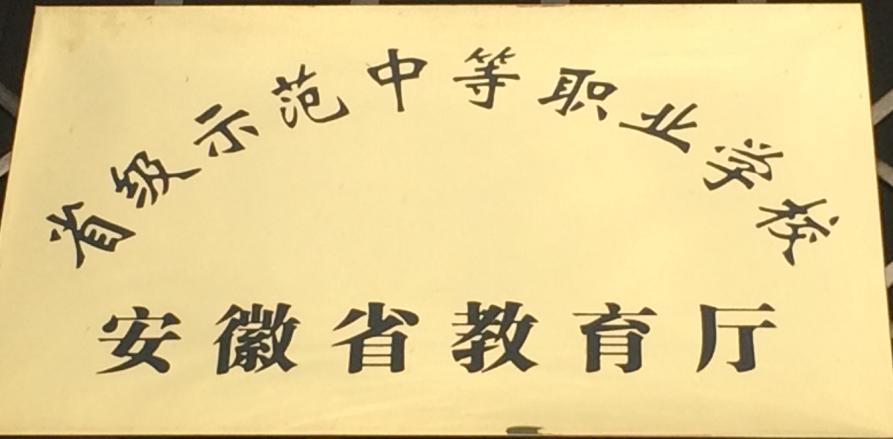 省级示范中等职业学校
安徽省教育厅